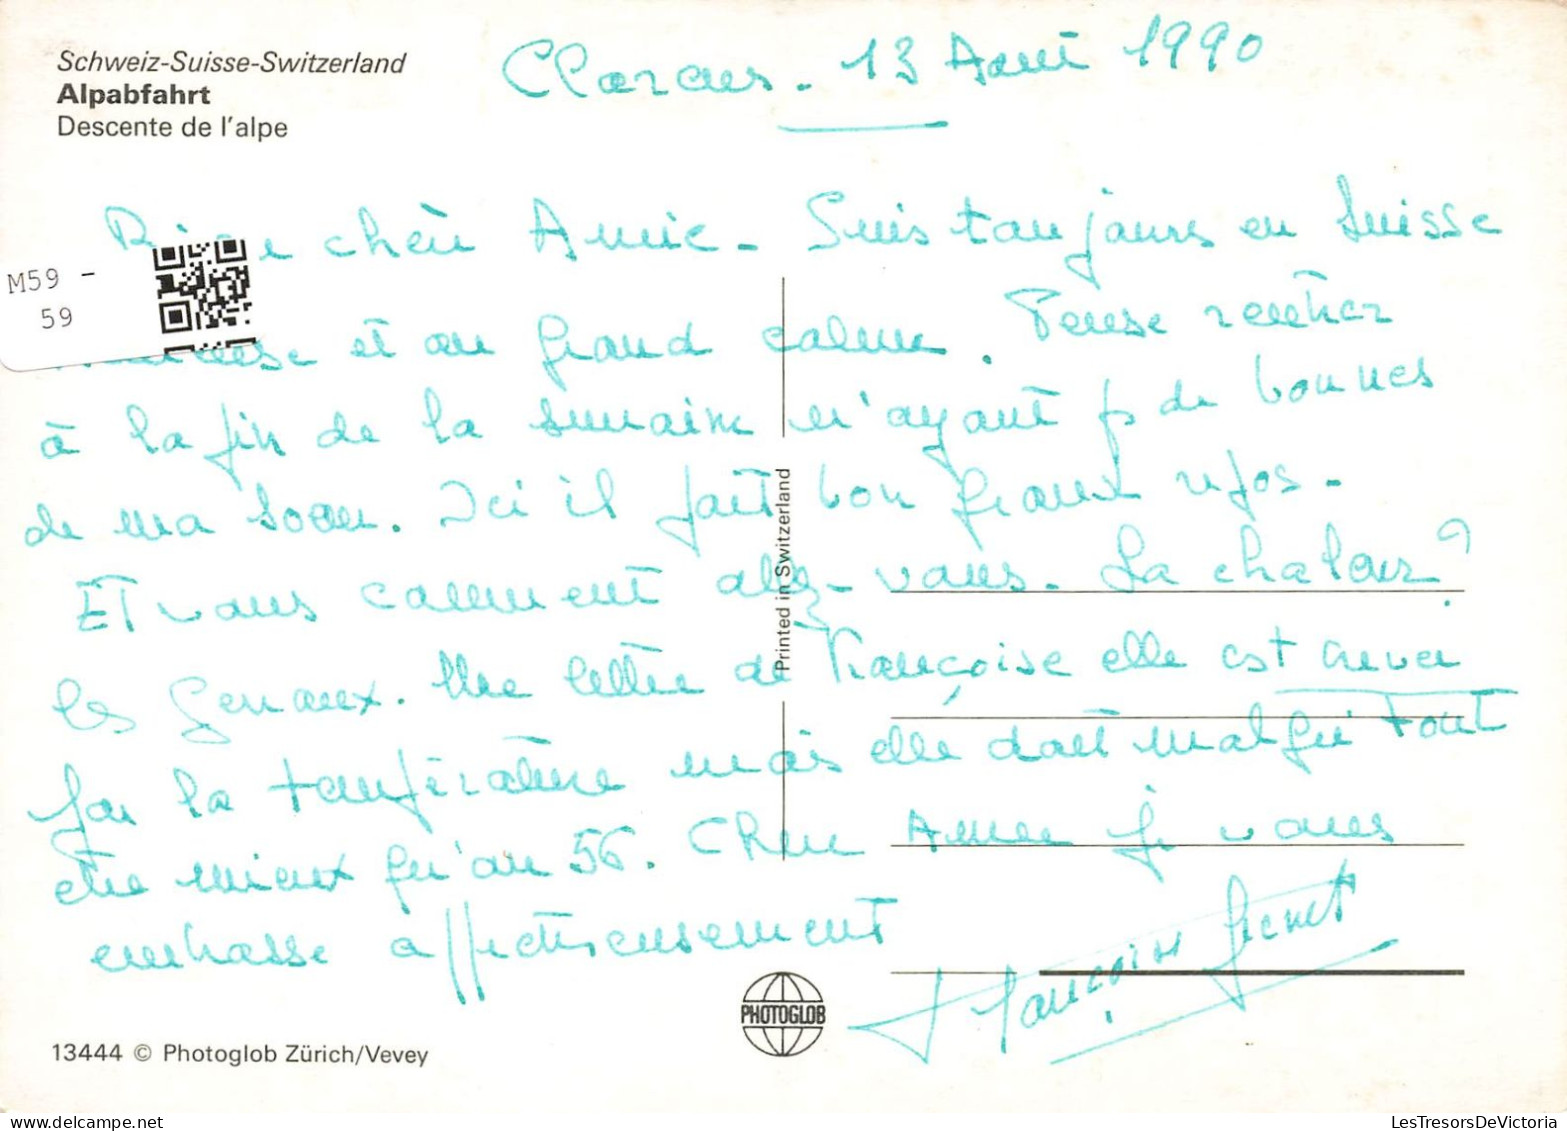 Schweiz-Suisse-Switzerland
Alpabfahrt
Descente de l'alpe
Clarens. 13 Août 1990
chère Amie - Suis toujours en Suisse
M59 -
59
et au grand calme. Pense rentrer
à la fin de la semaine n'ayant p de bonnes
de ma soeur. Ici il fait bon grand repos -
Et vous comment allez-vous. La chaleur?
les genoux. Une lettre de Françoise elle est crevée
par la température mais elle doit malgré tout
être mieux qu'au 56. Chère Amie je vous
embrasse affectueusement
Françoise
Printed in Switzerland
PHOTOGLOB
13444 © Photoglob Zürich/Vevey
LesTresorsDeVictoria